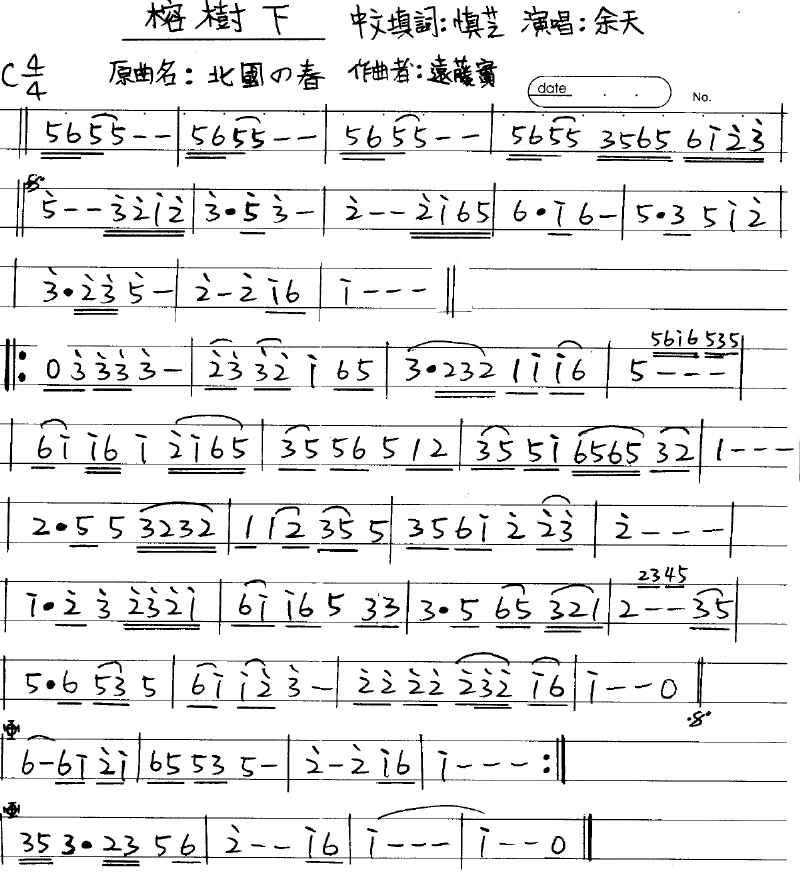 榕樹下 中文填詞:慎芝 演唱:余天
C 4/4 原曲名:北國の春 作曲者:遠藤實
date . . No.
‖ 5 6 5 5 - - | 5 6 5 5 - - | 5 6 5 5 - - | 5 6 5 5 3 5 6 5 6 i̇ 2̇ 3̇ |
‖ 5̇ - - 3̇ 2̇ i̇ 2̇ | 3̇ • 5̇ 3̇ - | 2̇ - - 2̇ i̇ 6 5 | 6 • i̇ 6 - | 5 • 3 5 i̇ 2̇ |
| 3̇ • 2̇ 3̇ 5̇ - | 2̇ - 2̇ i̇ 6 | i̇ - - - ‖
‖: 0 3̇ 3̇ 3̇ 3̇ - | 2̇ 3̇ 3̇ 2̇ i̇ 6 5 | 3 • 2 3 2 1 i̇ i̇ 6 | 5 - - - |
5 6 i̇ 6 5 3 5
| 6 i̇ i̇ 6 i̇ 2̇ i̇ 6 5 | 3 5 5 6 5 1 2 | 3 5 5 i̇ 6 5 6 5 3 2 | 1 - - -
| 2 • 5 5 3 2 3 2 | 1 1 2 3 5 5 | 3 5 6 i̇ 2̇ 2̇ 3̇ | 2̇ - - - |
| i̇ • 2̇ 3̇ 2̇ 3̇ 2̇ i̇ | 6 i̇ i̇ 6 5 3 3 | 3 • 5 6 5 3 2 1 | 2 - - 3 5 |
2 3 4 5
| 5 • 6 5 3 5 | 6 i̇ i̇ 2̇ 3̇ - | 2̇ 2̇ 2̇ 2̇ 2̇ 3̇ 2̇ i̇ 6 | i̇ - - 0 ‖
| 6 - 6 i̇ 2̇ i̇ | 6 5 5 3 5 - | 2̇ - 2̇ i̇ 6 | i̇ - - - :‖
| 3 5 3 • 2 3 5 6 | 2̇ - - i̇ 6 | i̇ - - - | i̇ - - 0 ‖